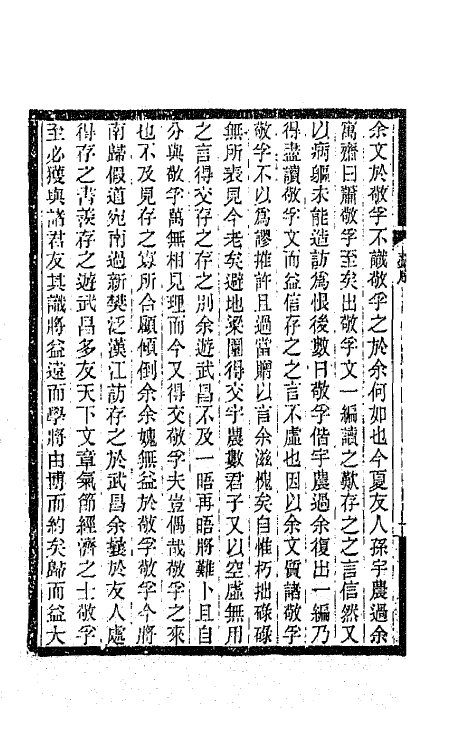 余文於敬孚不識敬孚之於余何如也今夏友人孫宇農過余
寓齋曰蕭敬孚至矣出敬孚文一編讀之歎存之之言信然又
以病軀未能造訪爲恨後數日敬孚偕宇農過余復出一編乃
得盡讀敬孚文而益信存之之言不虛也因以余文質諸敬孚
敬孚不以爲謬推許且過當贈以言余滋愧矣自惟朽拙碌碌
無所表見今老矣避地梁園得交宇農數君子又以空虛無用
之言得交存之存之別余遊武昌不及一晤再晤將難卜且自
分與敬孚萬無相見理而今又得交敬孚夫豈偶哉敬孚之來
也不及見存之寡所合顧傾倒余余媿無益於敬孚敬孚今將
南歸假道宛南過新樊泛漢江訪存之於武昌余曩於友人處
得存之書羨存之遊武昌多友天下文章氣節經濟之士敬孚
至必獲與諸君友其識將益遠而學將由博而約矣歸而益大